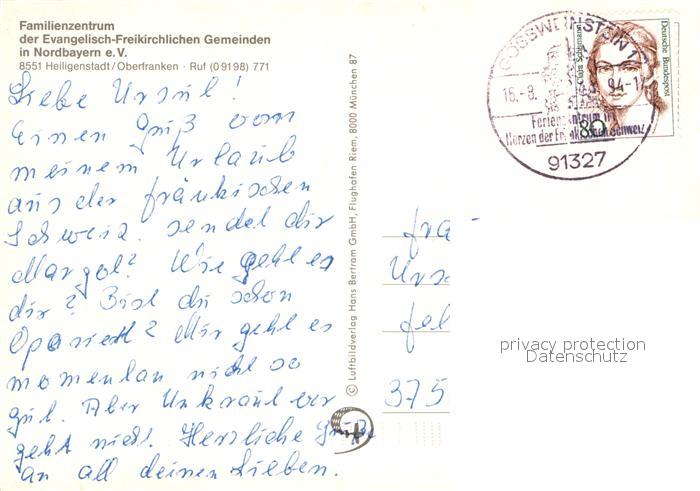 Familienzentrum
der Evangelisch-Freikirchlichen Gemeinden
in Nordbayern e.V.
8551 Heiligenstadt/Oberfranken · Ruf (0 91 98) 771
Liebe Ursul!
Einen Gruß vom
meinem Urlaub
aus der fränkischen
Schweiz. sendet dir
Margot? Wie geht es
dir? Bist du schon
Operiert? Mir geht es
momentan nicht so
gut. Aber Unkraut ver
geht nicht. Herzliche Grüße
an all deinen Lieben.
© Luftbildverlag Hans Bertram GmbH, Flughafen Riem, 8000 München 87
GOSSWEINSTEIN 1
16.-8. 94-1
Ferienzentrum im
Herzen der Fränkischen Schweiz
91327
Clara Schumann
Deutsche Bundespost
80
Fra
Urs
375
privacy protection
Datenschutz